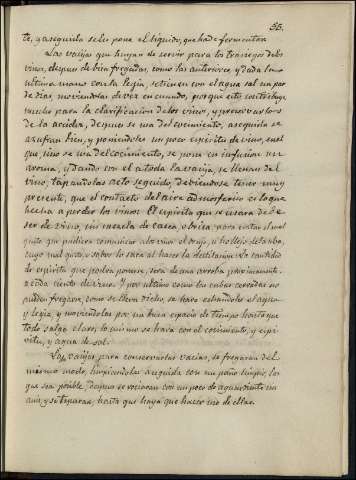 55.
te, y aseguida se le pone el liquido, que ha de fermentar.
Las vasijas que hayan de servir para los trasiegos de los
vinos, despues de bien fregadas, como las anteriores, y dada la
ultima mano con la legia, se tienen con el agua sal un par
de dias, moviendolas de vez en cuando, porque esto contribuye
mucho para la clarificacion de los vinos, y preservarlos
de la accidia, despues se usa del cocimiento, aseguida se
azufran bien, y poniendoles un poco espiritu de vino, en el
que, sino se usa del cocimiento, se pone en infusion un
aroma, y dando con el a toda la vasija, se llenan del
vino, tapandolas acto seguido, debiendose tener muy
presente, que el contacto del aire atmosferico es lo que
hecha a perder los vinos. El espiritu que se usara debe
ser de vino, sin mezcla de caña, u brisa, para evitar el mal
gusto que pudiera comunicar a los vinos el orujo, u hollejo de la uba,
cuyo mal gusto, u sabor lo saca al hacer la destilacion. La cantidad
de espiritu que podra ponerse, sera de una arroba proximamente
a cada ciento de vino. Y por ultimo como las cubas cerradas no
pueden fregarse, como se lleva dicho, se hara echandole el agua
y legia, y moviendolas por un buen espacio de tiempo hasta que
todo salga claro, lo mismo se hara con el cocimiento, y espi-
ritu, y agua de sal.
Las vasijas para conservarlas vacias, se fregaran del
mismo modo, limpiandolas aseguida con un paño limpio, lo
que sea posible, despues se rociaran con un poco de aguardiente sin
anis, y se taparan, hasta que haya que hacer uso de ellas.